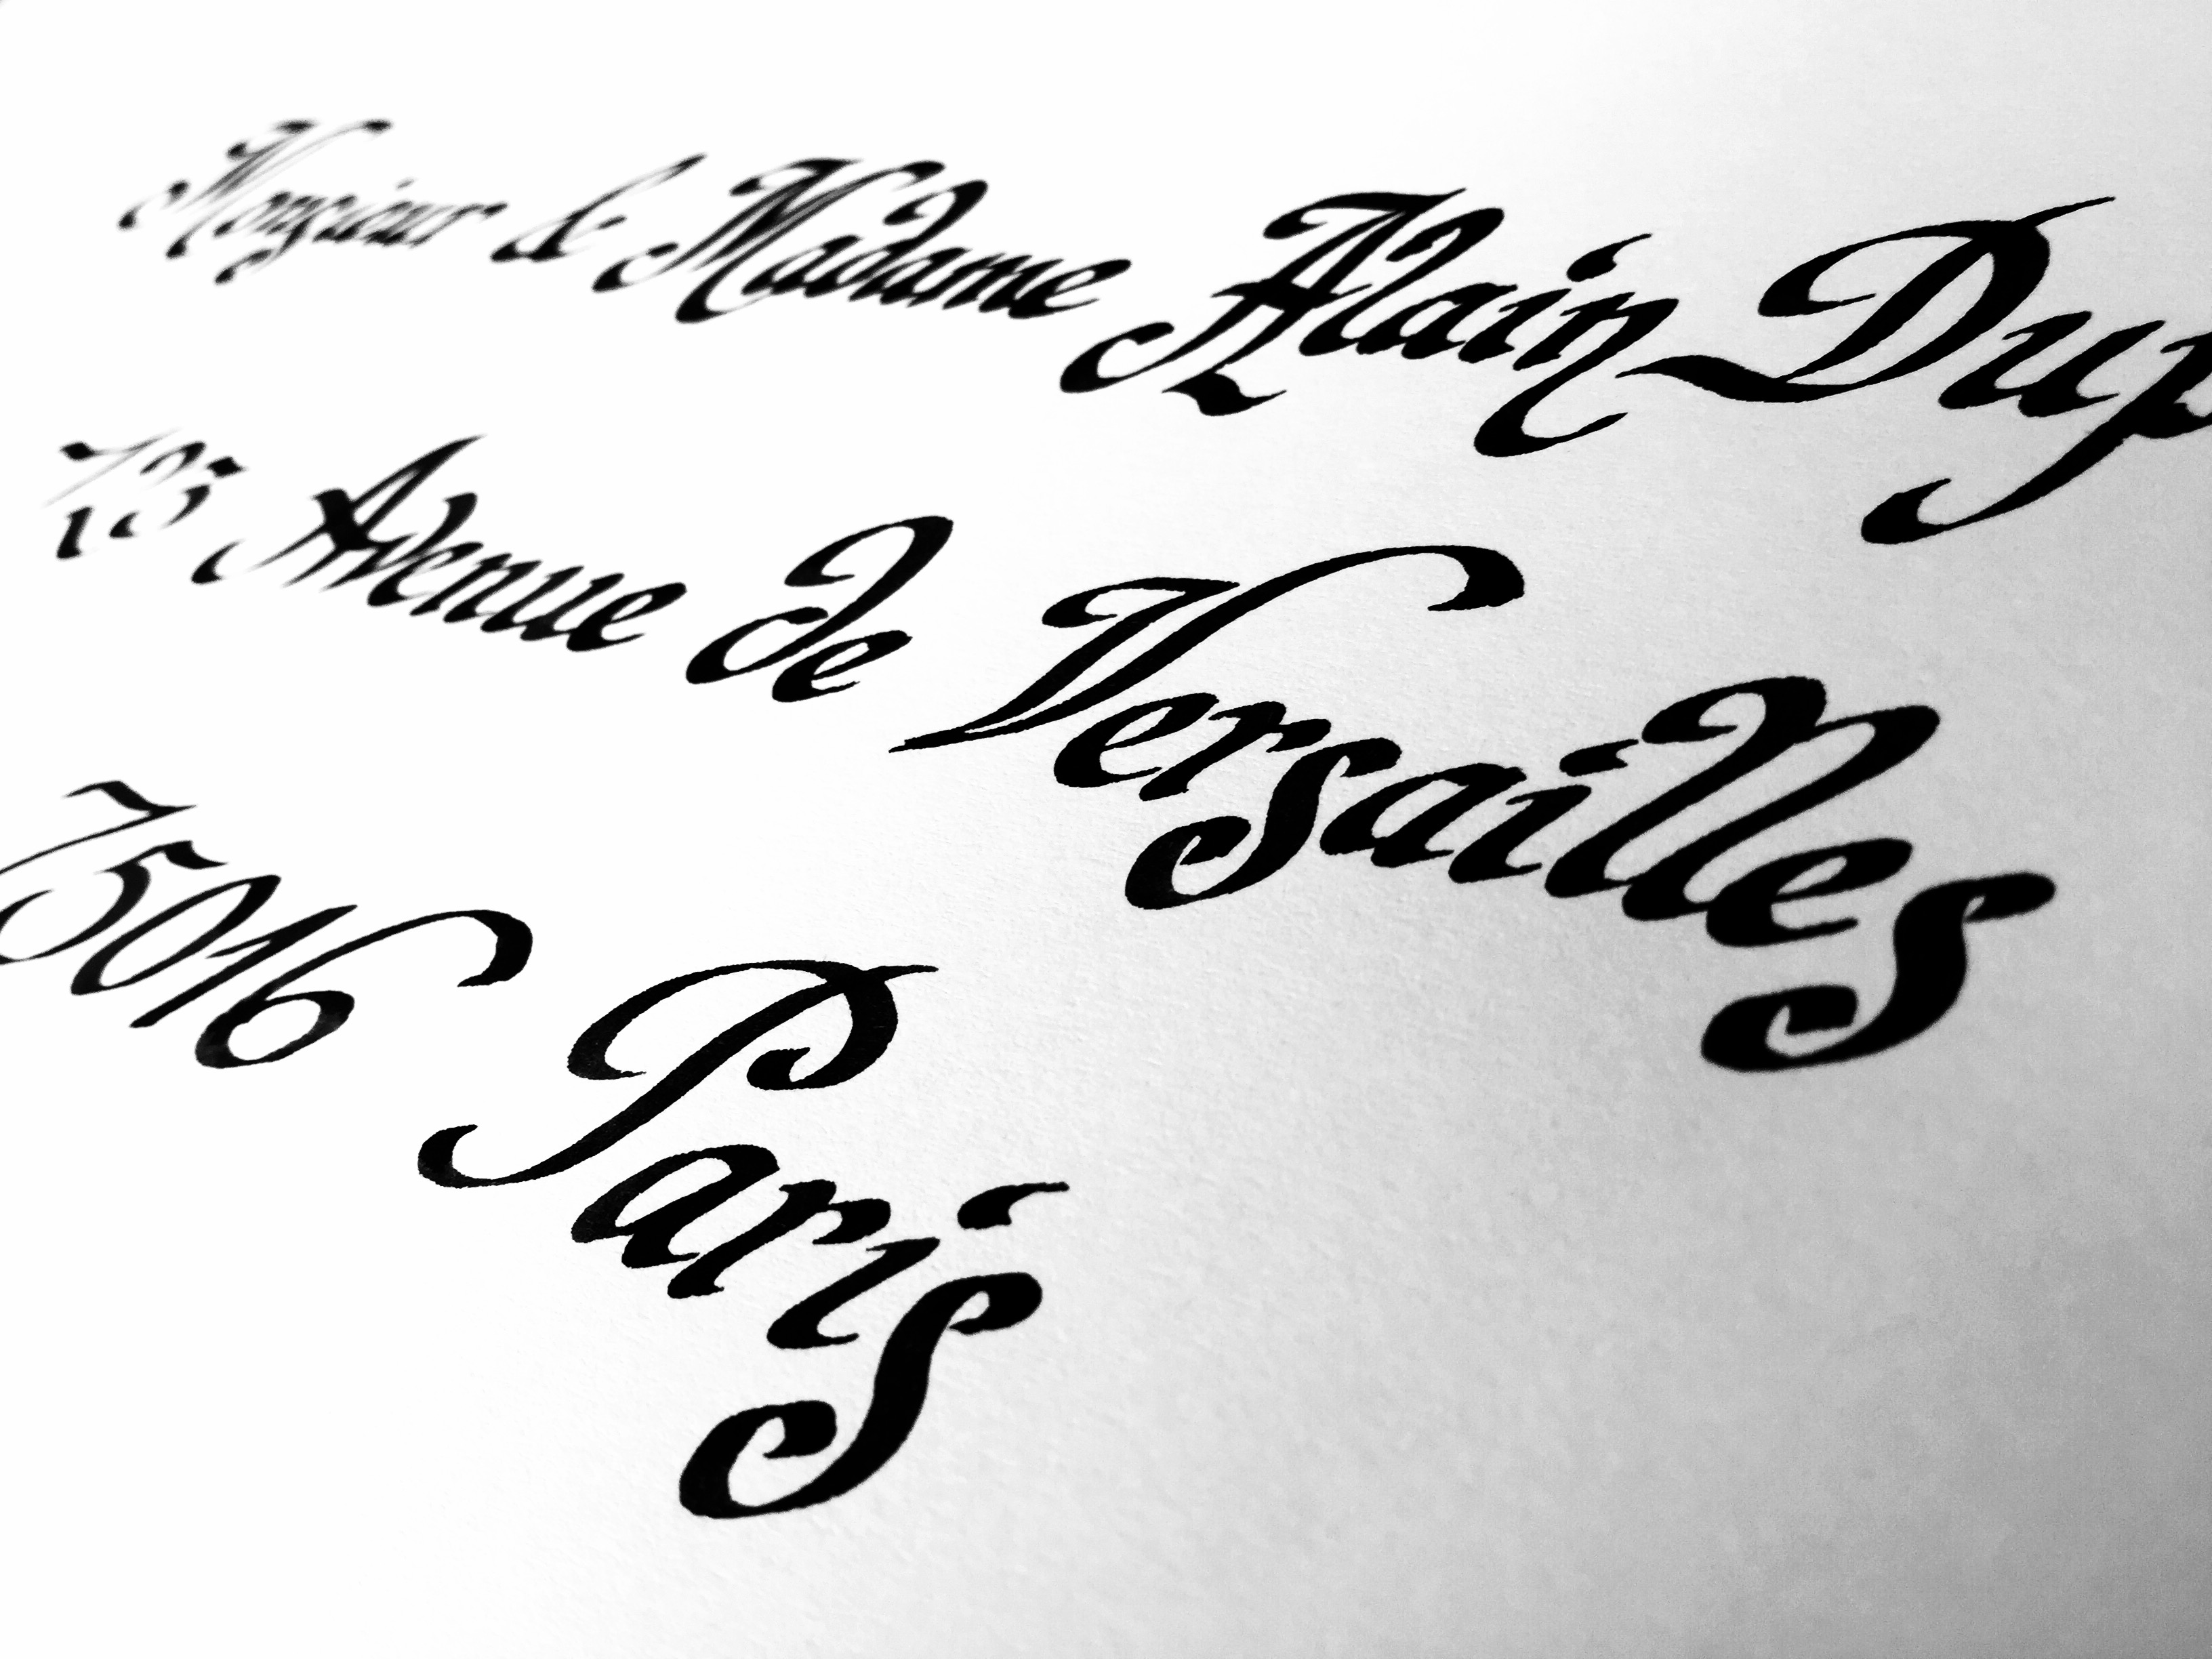 Monsieur & Madame Alain Dup
13 Avenue de Versailles
75016 Paris